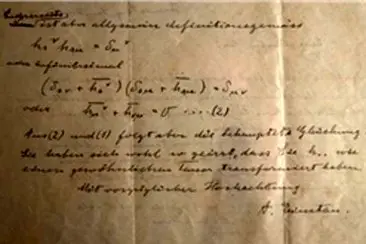 ist aber allgemein definitionsgemäss
h_s^ν h_sμ = δ_μ^ν
oder infinitesimal
(δ_sν + h̄_s^ν) (δ_sμ + h̄_sμ) = δ_μν
oder h̄_μ^ν + h̄_νμ = 0 ... (2)
Aus (2) und (1) folgt aber die behauptete Gleichung
Sie haben sich wohl so geirrt, dass Sie h.. wie
einen gewöhnlichen Tensor transformiert haben.
Mit vorzüglicher Hochachtung
A. Einstein.